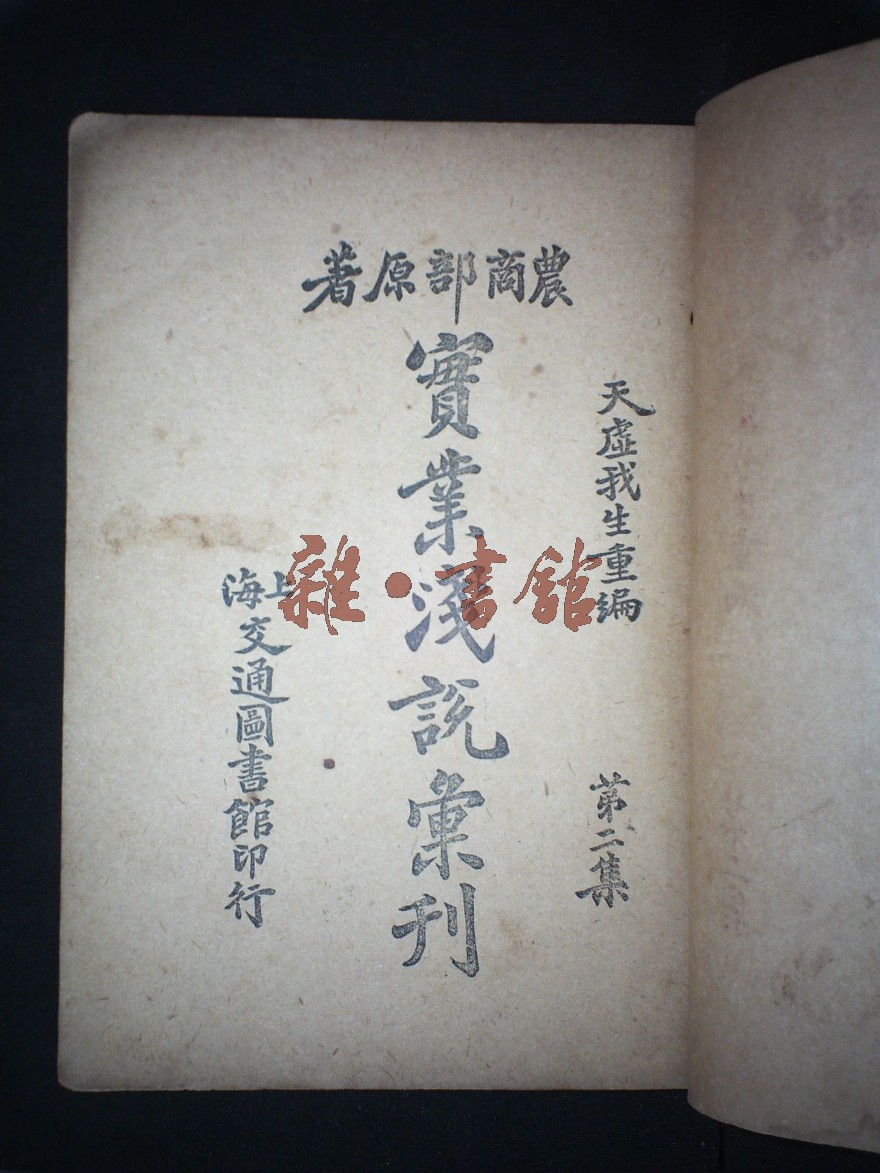 農商部原著
天虛我生重編
第二集
實業淺説彙刊
上海交通圖書館印行
雜·書館